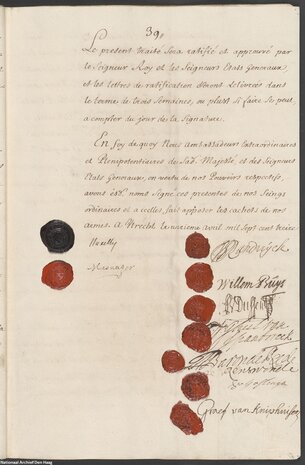 39.
Le present traité sera ratifié et approuvé par
le Seigneur Roy et les Seigneurs Etats Generaux,
et les lettres de ratification seront delivrées dans
le terme de trois semaines, ou plustost si faire se peut,
a compter du jour de la Signature.
En foy de quoy Nous Ambassadeurs Extraordinaires
et Plenipotentiaires de Sad. Majesté et des Seigneurs
Etats Generaux, en vertu de nos Pouvoirs respectifs,
avons esd. noms signé ces presentes de nos Seings
ordinaires et a icelles fait apposer les cachets de nos
armes. A Utrecht le onzieme avril mil sept cent treize
Huxelles
Mesnager
Randwyck
Willem Buys
Graef van Kniphuisen
Nationaal Archief Den Haag